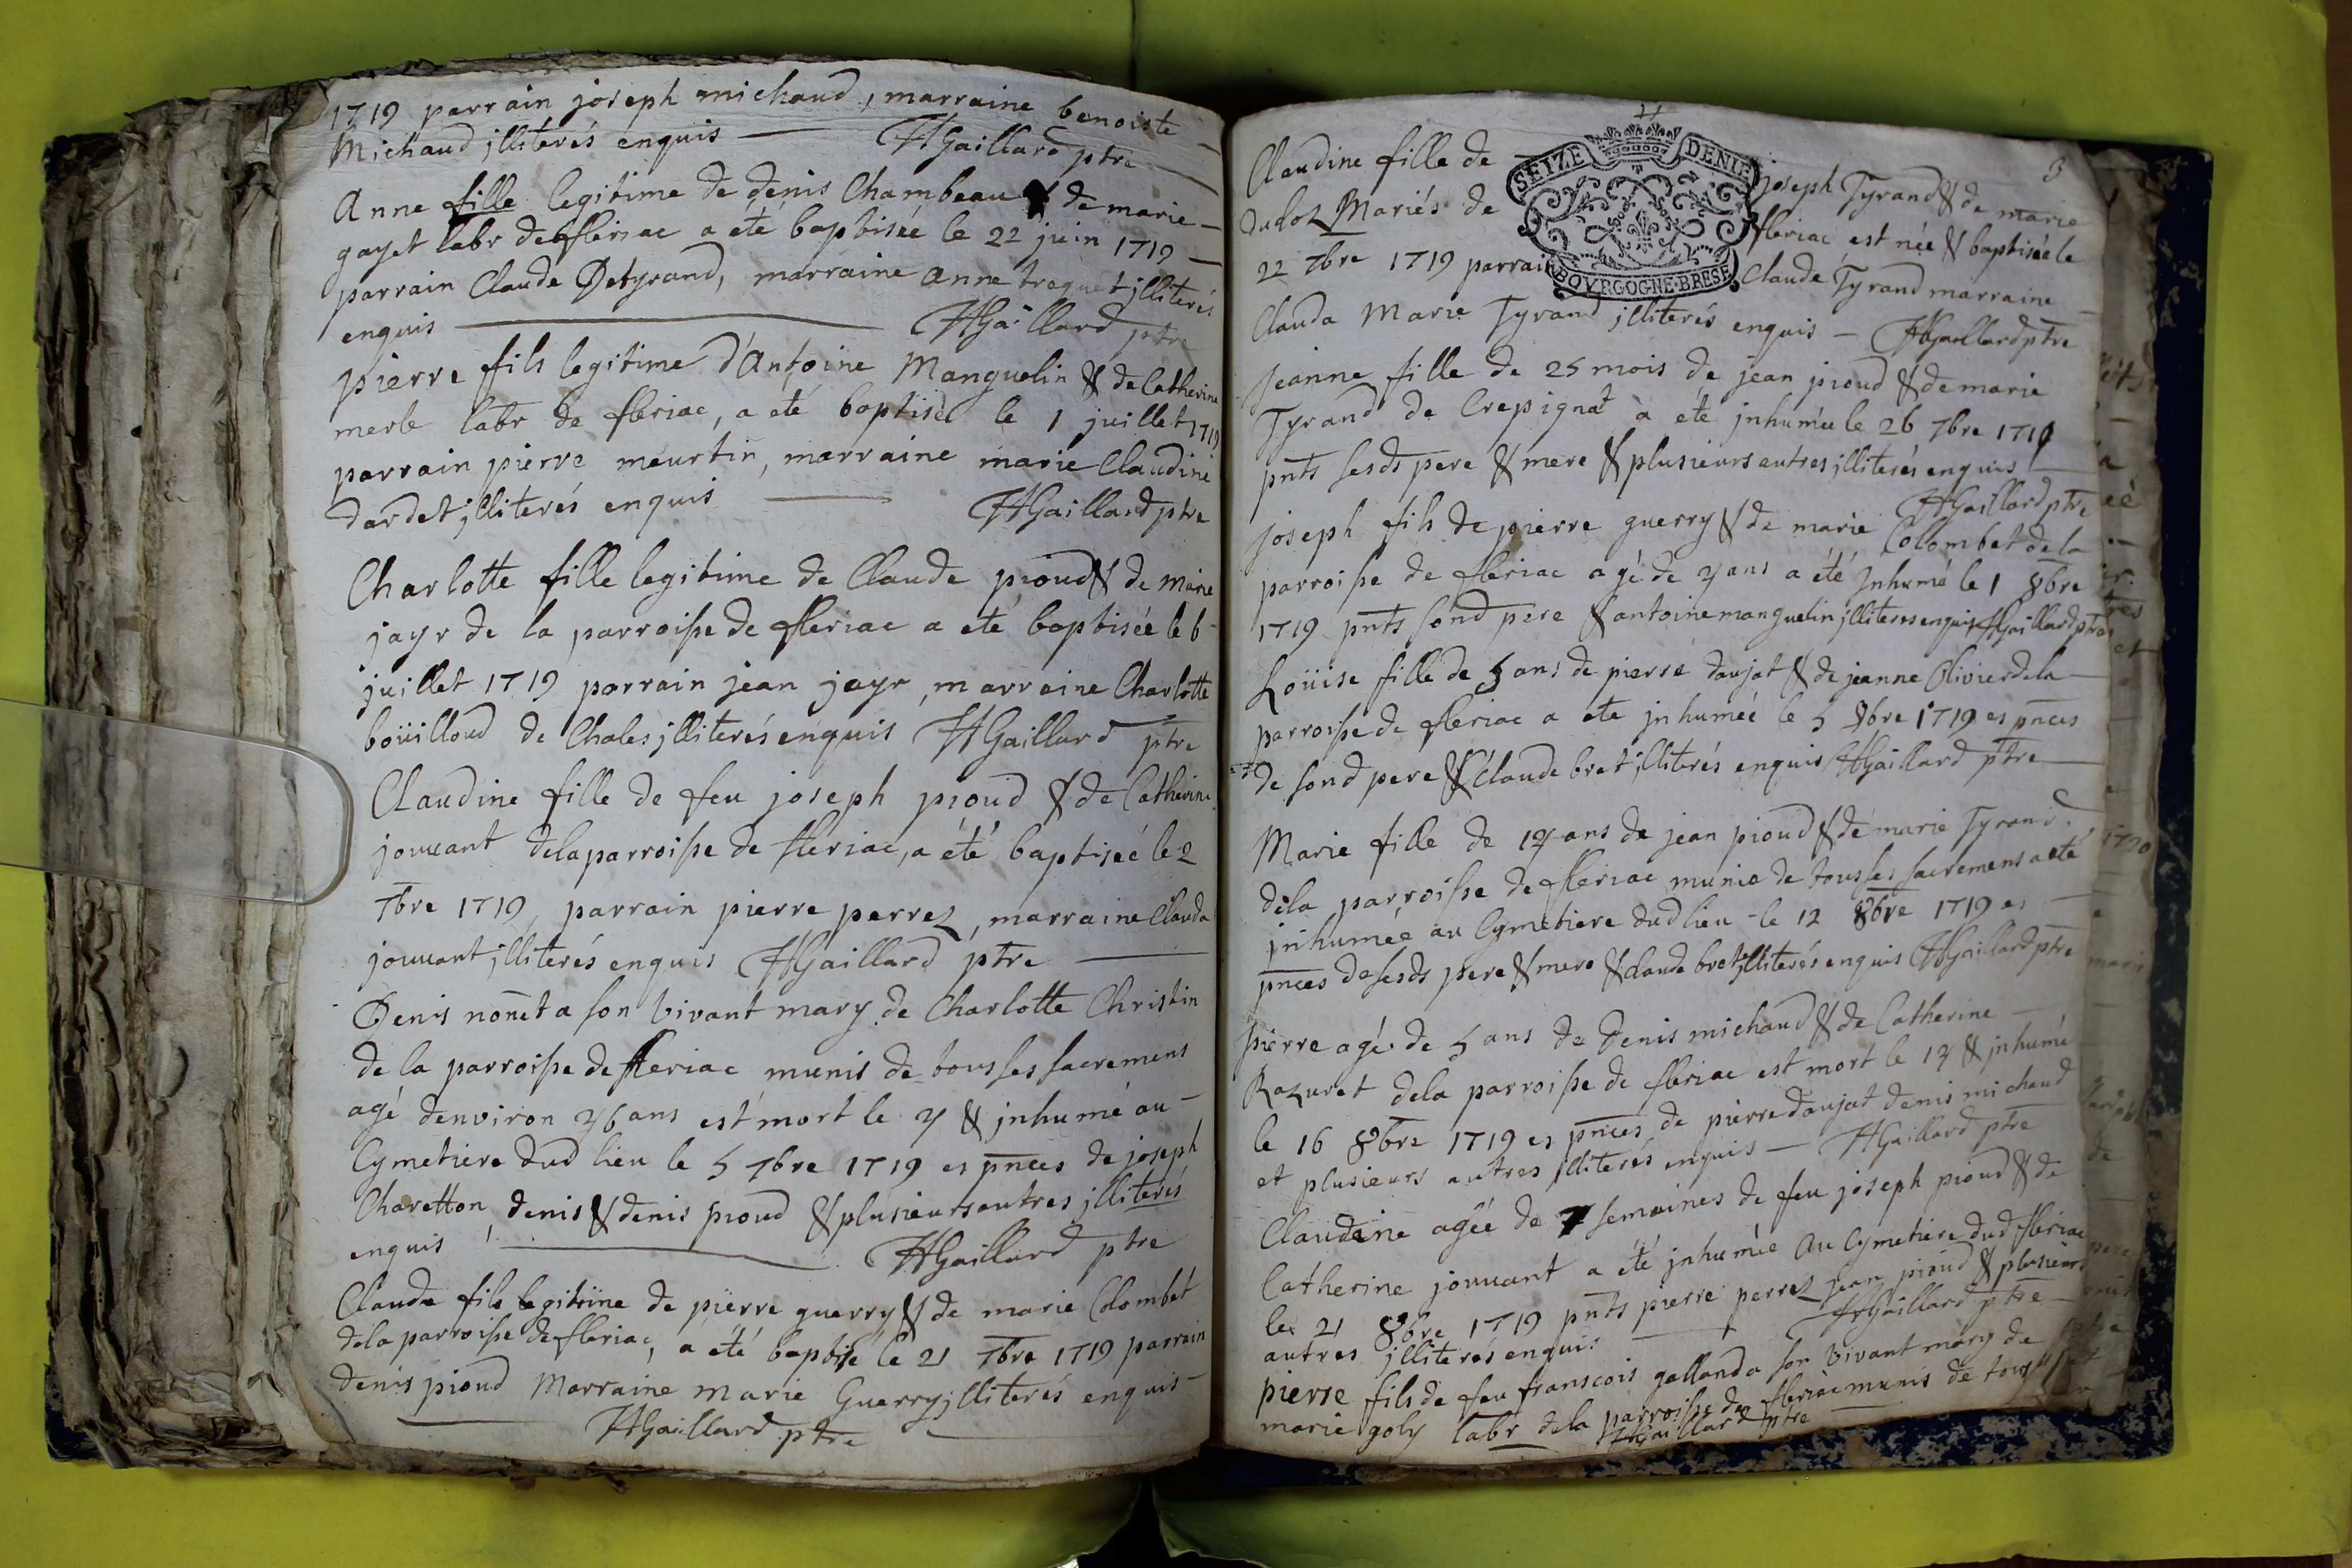 1719 parrain joseph michaud, marraine benoiste
Michaud jlliterés enquis — HGaillard ptre
Anne fille legitime de denis Chambeau & de marie
gayet labr de fleriac a eté baptisée le 22 juin 1719
parrain Claude Detyrand, marraine anne traquet jlliterés
enquis — HGaillard ptre
pierre fils legitime d'Antoine Manguelin & de Catherine
merle labr de fleriac, a eté baptisé le 1 juillet 1719
parrain pierre meurtin, marraine marie Claudine
dardet jlliterés enquis — HGaillard ptre
Charlotte fille legitime de Claude pioud & de Marie
jayr de la parroisse de fleriac a eté baptisée le 6
juillet 1719 parrain jean jayr, marraine Charlotte
boüilloud de Chales jlliterés enquis HGaillard ptre
Claudine fille de feu joseph pioud & de Catherine
jouuant dela parroisse de fleriac, a été baptisée le 2
7bre 1719, parrain pierre perrez, marraine Clauda
jouuant jlliterés enquis HGaillard ptre
Denis nonet a son vivant mary de Charlotte Christin
de la parroisse de fleriac munis de tous ses sacremens
agé denviron 46 ans est mort le 4 & jnhumé au
Cymetiere dud lieu le 5 7bre 1719 es pnces de joseph
Charetton, denis & denis pioud & plusieurs autres jlliterés
enquis — HGaillard ptre
Claude fils legitime de pierre guerry & de marie Colombet
dela parroisse de fleriac, a été baptisé le 21 7bre 1719 parrain
denis pioud Marraine marie Guerry jlliterés enquis
HGaillard ptre
3
SEIZE DENIE
BOVRGOGNE·BRESE
Claudine fille de joseph Tyrand & de marie
duloz Mariés de fleriac est née & baptisée le
22 7bre 1719 parrain Claude Tyrand marraine
Clauda Marie Tyrand jlliterés enquis — HGaillard ptre
Jeanne fille de 25 mois de jean pioud & de marie
Tyrand de Crepignat a eté jnhumée le 26 7bre 1719
pnts sesds pere & mere & plusieurs autres jlliterés enquis
HGaillard ptre
joseph fils de pierre guerry & de marie Colombet de la
parroisse de fleriac agé de 4 ans a été Jnhumé le 1 8bre
1719 pnts sond pere & antoine manguelin jlliteres enquis HGaillard ptre
Loüise fille de 5 ans de pierre daujat & de jeanne Olivier dela
parroisse de fleriac a eté jnhumée le 5 8bre 1719 es pnces
de sond pere & Claude bret jlliterés enquis HGaillard ptre
Marie fille de 14 ans de jean pioud & de marie Tyrand
dela parroisse de fleriac munie de tous ses sacremens a eté
jnhumée au Cymetiere dud lieu le 12 8bre 1719 es
pnces de sesds pere & mere & claude bret jlliterés enquis HGaillard ptre
pierre agé de 5 ans de Denis michaud & de Catherine
Razuret dela parroisse de fleriac est mort le 14 & jnhumé
le 16 8bre 1719 es pnces de pierre daujat denis michaud
et plusieurs autres jlliterés enquis — HGaillard ptre
Claudine agée de 7 semaines de feu joseph pioud & de
Catherine jouuant a été jnhumée au Cymetiere dud fleriac
le 21 8bre 1719 pnts pierre perrez jean pioud & plusieurs
autres jlliterés enquis — HGaillard ptre
pierre fils de feu franscois galland a son vivant mary de
marie goly labr dela parroisse de fleriac munis de tous ses
HGaillard ptre